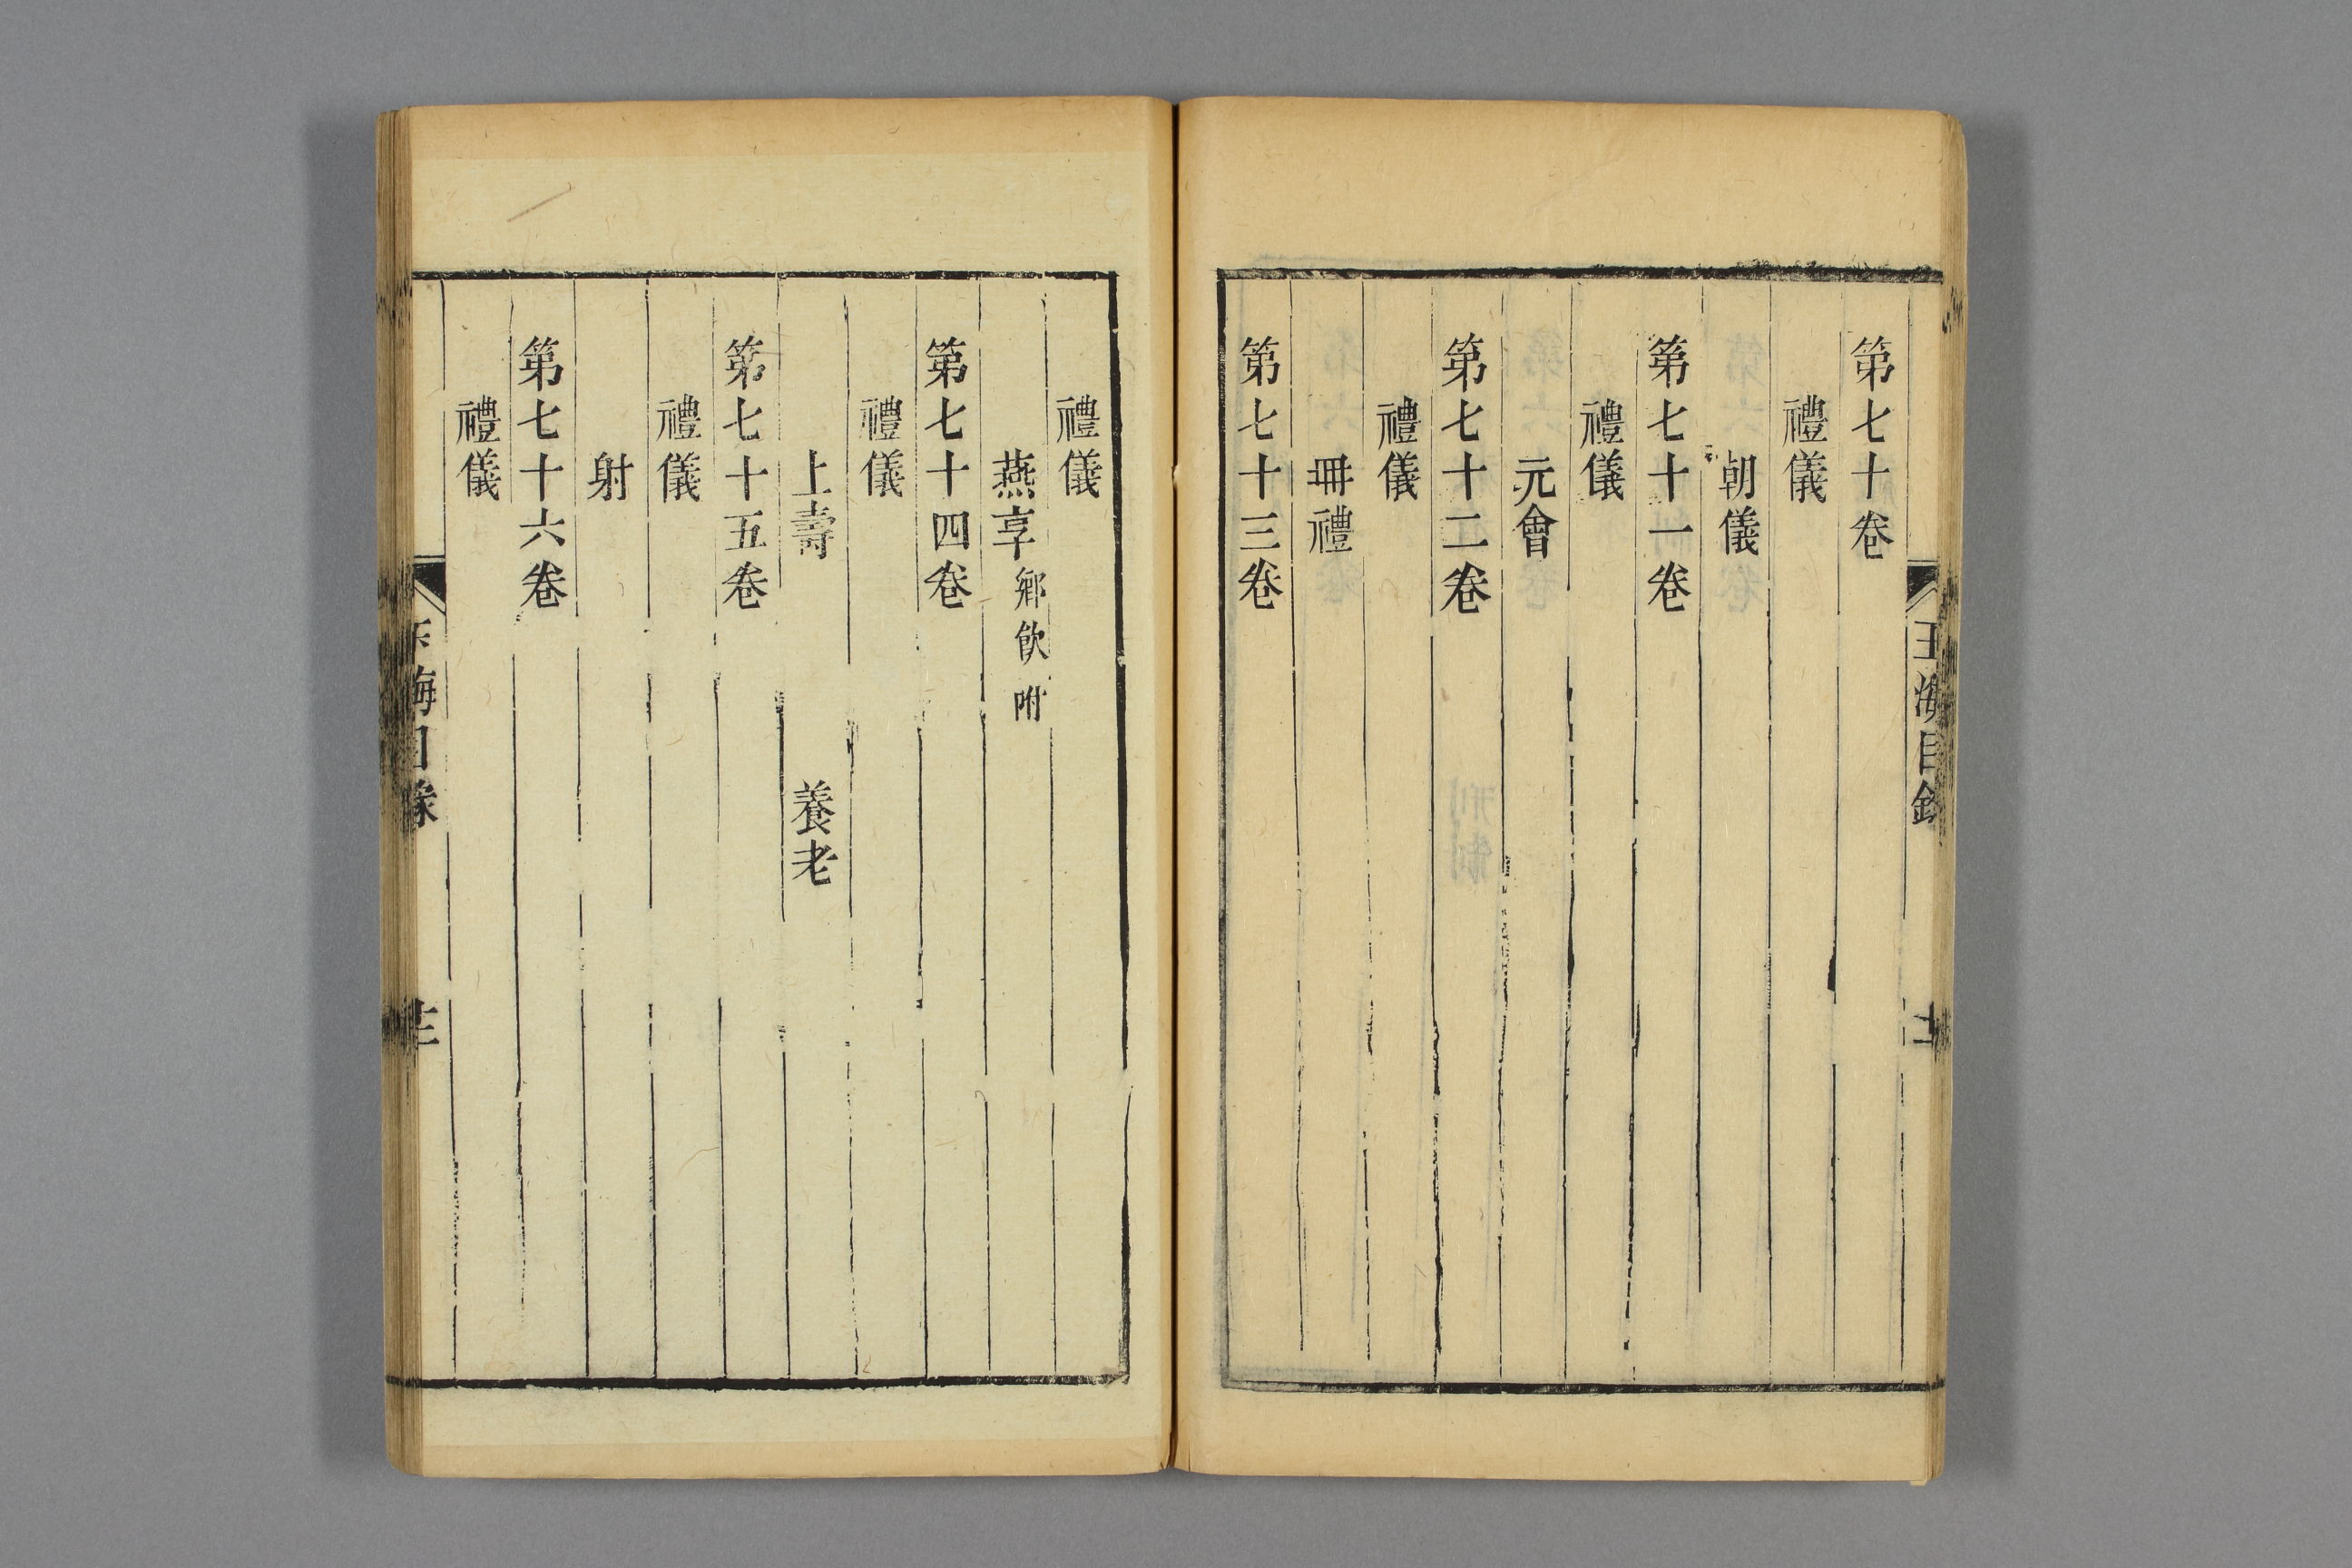 玉海目錄
第七十卷
禮儀
朝儀
第七十一卷
禮儀
元會
第七十二卷
禮儀
冊禮
第七十三卷
禮儀
燕享鄉飲附
第七十四卷
禮儀
上壽 養老
第七十五卷
禮儀
射
第七十六卷
禮儀
玉海目錄